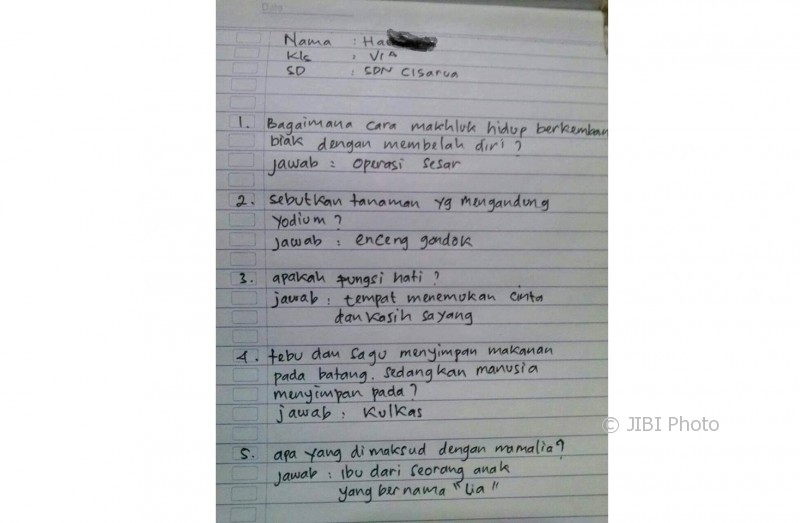 Date
Nama : Ha
Kls : VI A
SD : SDN Cisarua
1. Bagaimana cara makhluk hidup berkemban
biak dengan membelah diri ?
jawab : operasi sesar
2. sebutkan tanaman yg mengandung
yodium ?
jawab : enceng gondok
3. apakah fungsi hati ?
jawab : tempat menemukan cinta
dan kasih sayang
4. tebu dan sagu menyimpan makanan
pada batang. sedangkan manusia
menyimpan pada ?
jawab : kulkas
© JIBI Photo
5. apa yang di maksud dengan mamalia ?
jawab : ibu dari seorang anak
yang bernama "Lia"